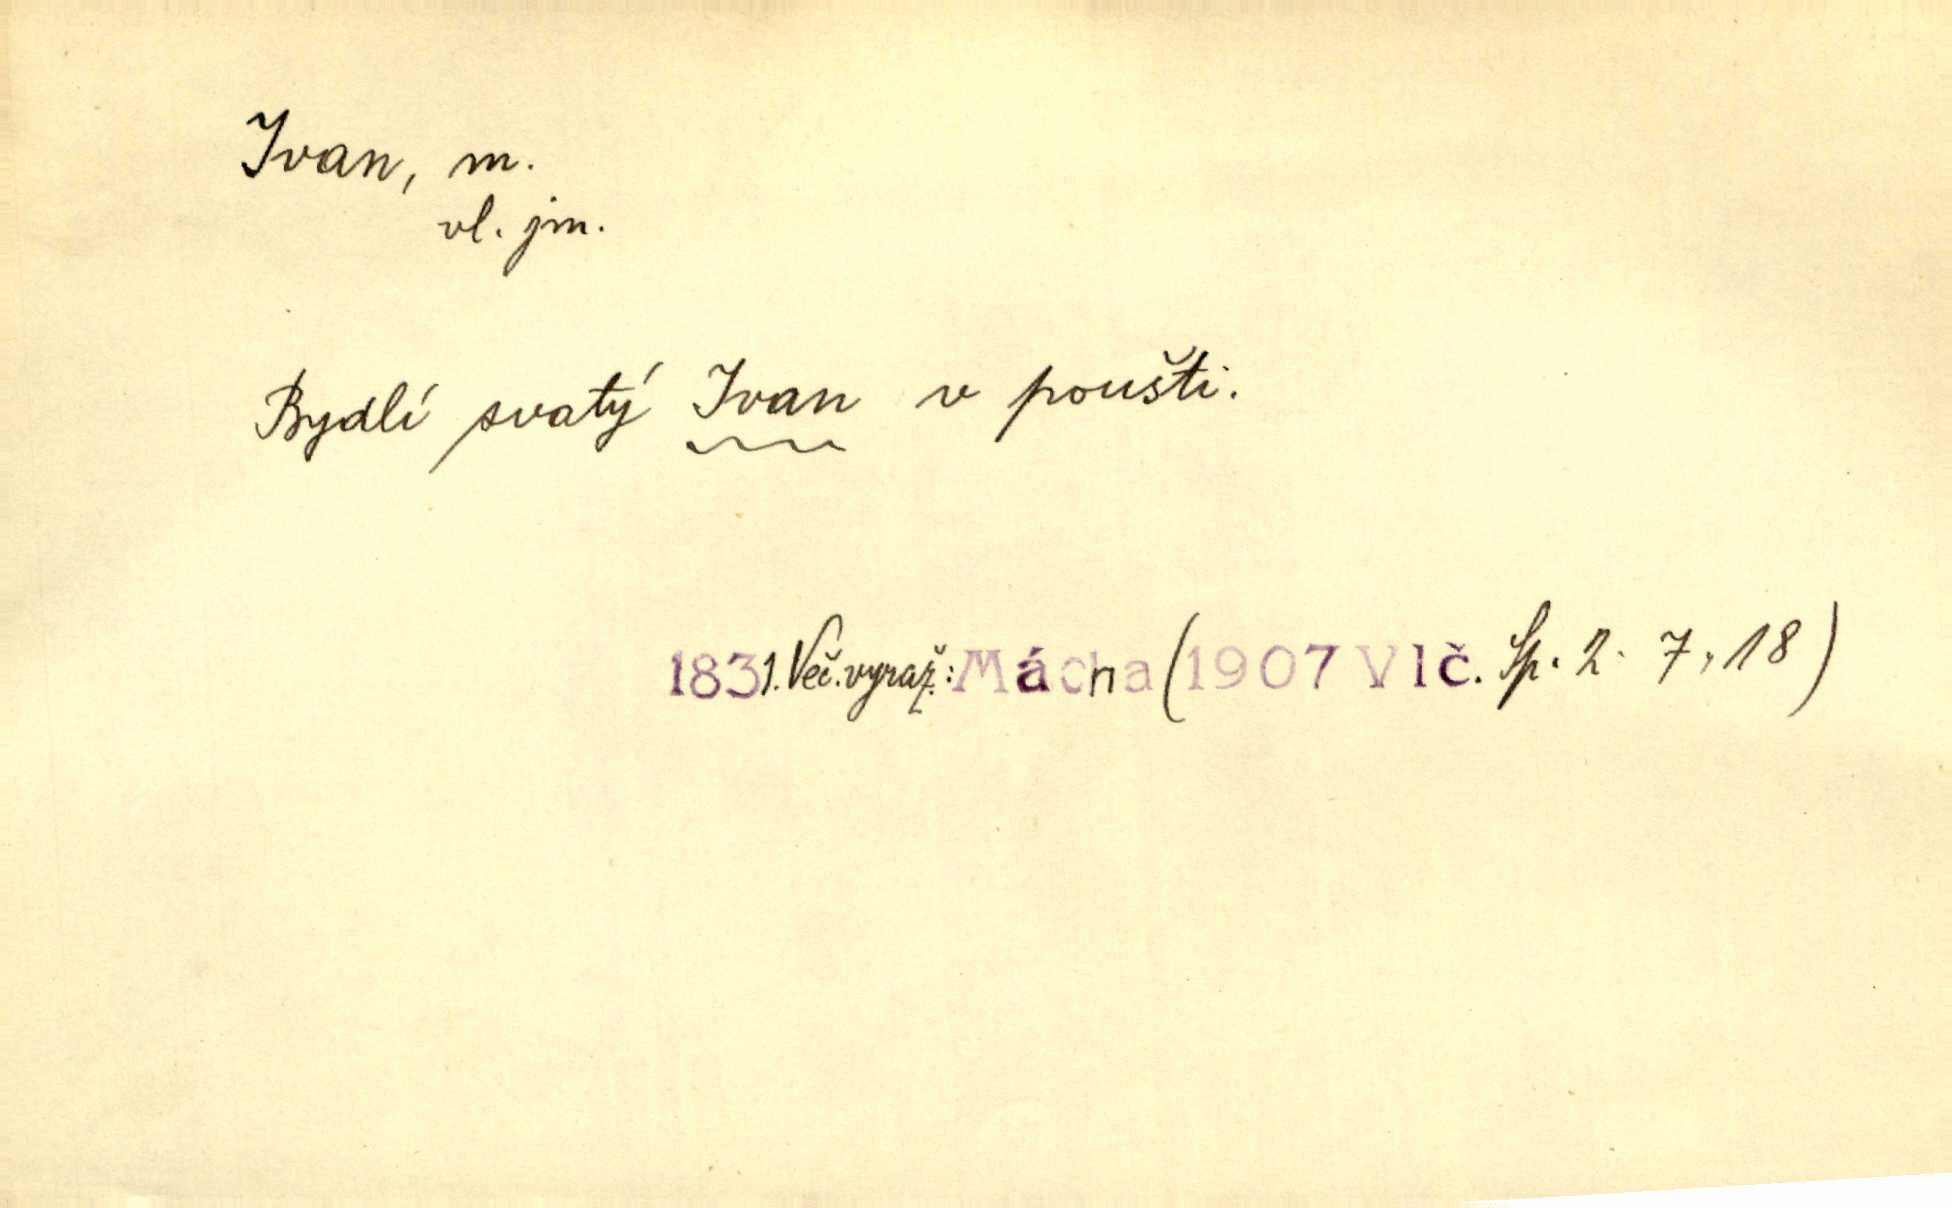 Ivan, m.
vl. jm.
Bydlí svatý Ivan v poušti.
1831. Več. vyraž.: Mácha (1907 Vlč. Sp. 2. 7, 18)